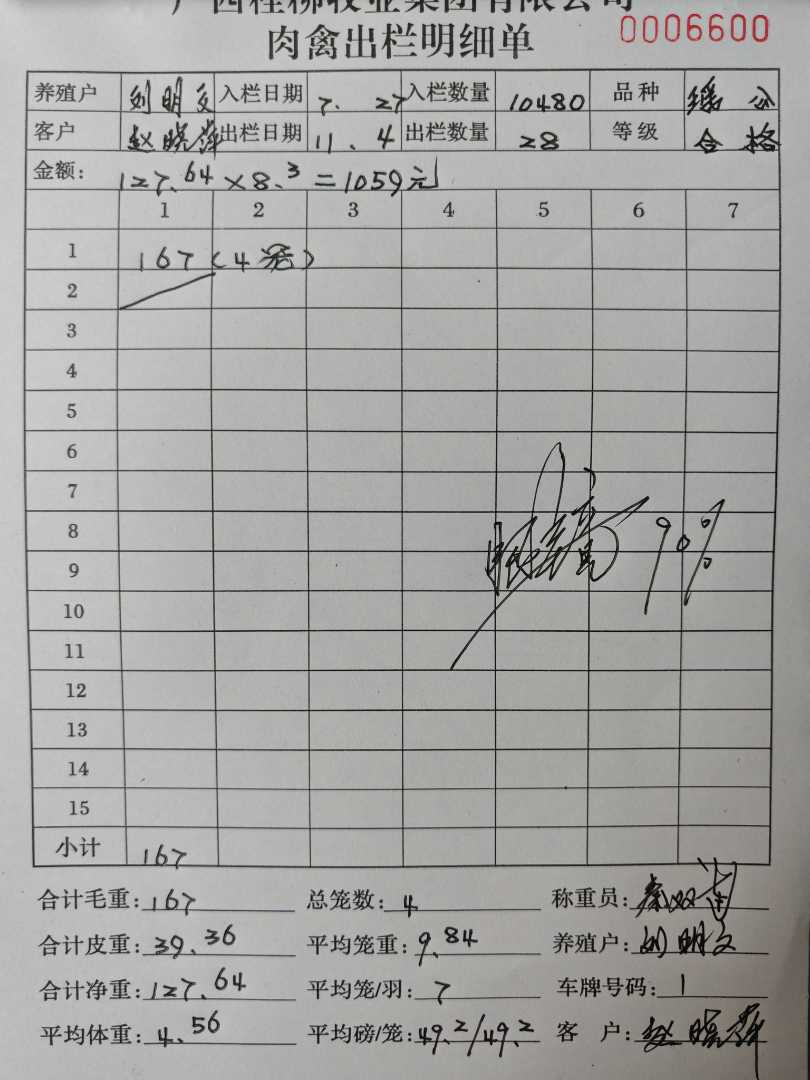 广西桂柳牧业集团有限公司
肉禽出栏明细单 0006600
养殖户 刘明文 入栏日期 7.27 入栏数量 10480 品种
客户 赵晓萍 出栏日期 11.4 出栏数量 28 等级 合格
金额: 127.64×8.3=1059元
1 2 3 4 5 6 7
1 167(4笼)
2
3
4
5
6
7
8 90%
9
10
11
12
13
14
15
小计 167
合计毛重: 167 总笼数: 4 称重员:
合计皮重: 39.36 平均笼重: 9.84 养殖户: 刘明文
合计净重: 127.64 平均笼/羽: 7 车牌号码: 1
平均体重: 4.56 平均磅/笼: 49.2/49.2 客户: 赵晓萍